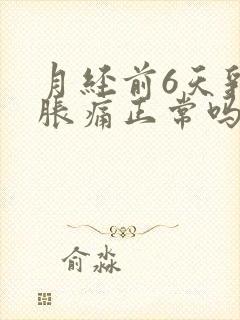 月经前6天乳
胀痛正常吗
俞淼